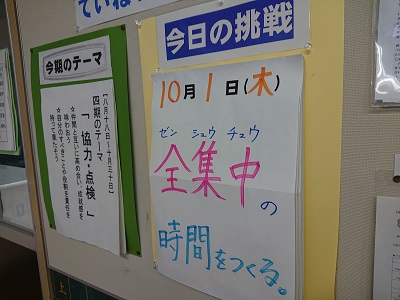 ていね
今日の挑戦
10月1日(木)
ゼン シュウ チュウ
全集中の
時間をつくる。
今期のテーマ
【八月十八日~十月三十日】
四期のテーマ
「協力・点検」
☆仲間と互いに高め合い、成就感を
味わおう
☆自分のすべきことや役割を責任を
持って果たそう
土